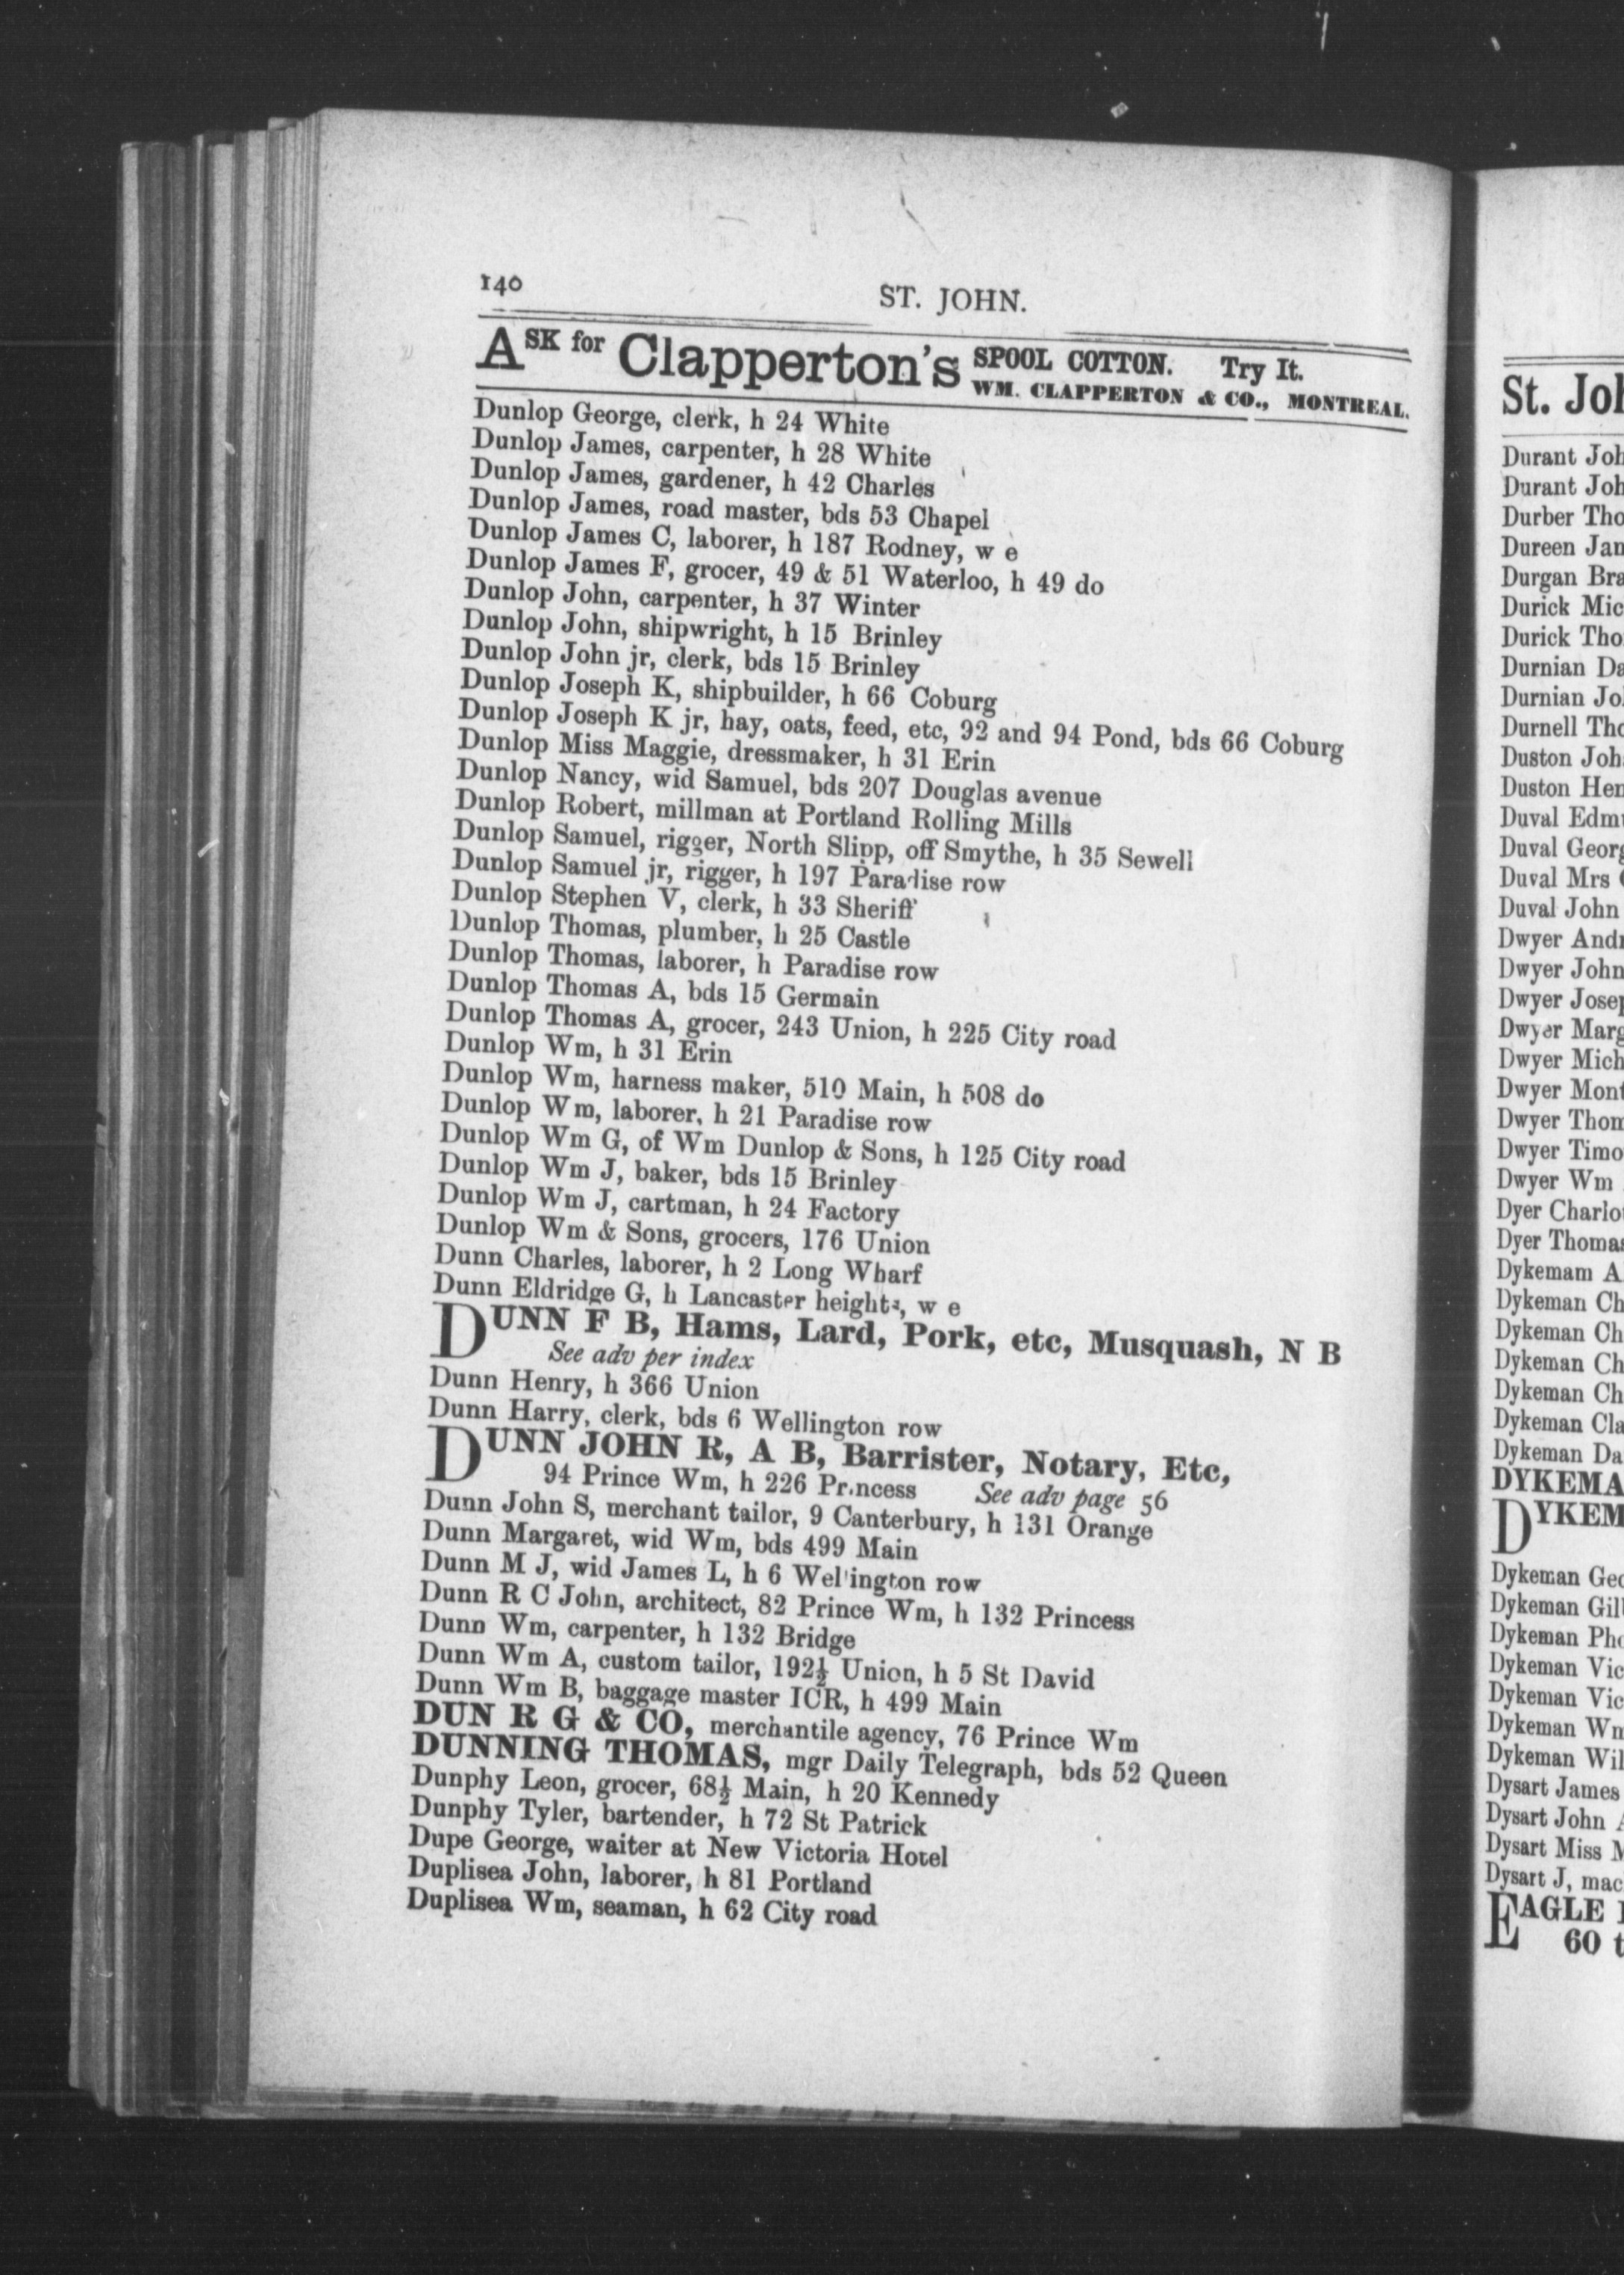 140
ST. JOHN.
ASK for Clapperton's SPOOL COTTON. Try It.
WM. CLAPPERTON & CO., MONTREAL.
Dunlop George, clerk, h 24 White
Dunlop James, carpenter, h 28 White
Dunlop James, gardener, h 42 Charles
Dunlop James, road master, bds 53 Chapel
Dunlop James C, laborer, h 187 Rodney, w e
Dunlop James F, grocer, 49 & 51 Waterloo, h 49 do
Dunlop John, carpenter, h 37 Winter
Dunlop John, shipwright, h 15 Brinley
Dunlop John jr, clerk, bds 15 Brinley
Dunlop Joseph K, shipbuilder, h 66 Coburg
Dunlop Joseph K jr, hay, oats, feed, etc, 92 and 94 Pond, bds 66 Coburg
Dunlop Miss Maggie, dressmaker, h 31 Erin
Dunlop Nancy, wid Samuel, bds 207 Douglas avenue
Dunlop Robert, millman at Portland Rolling Mills
Dunlop Samuel, rigger, North Slipp, off Smythe, h 35 Sewell
Dunlop Samuel jr, rigger, h 197 Paradise row
Dunlop Stephen V, clerk, h 33 Sheriff
Dunlop Thomas, plumber, h 25 Castle
Dunlop Thomas, laborer, h Paradise row
Dunlop Thomas A, bds 15 Germain
Dunlop Thomas A, grocer, 243 Union, h 225 City road
Dunlop Wm, h 31 Erin
Dunlop Wm, harness maker, 510 Main, h 508 do
Dunlop Wm, laborer, h 21 Paradise row
Dunlop Wm G, of Wm Dunlop & Sons, h 125 City road
Dunlop Wm J, baker, bds 15 Brinley
Dunlop Wm J, cartman, h 24 Factory
Dunlop Wm & Sons, grocers, 176 Union
Dunn Charles, laborer, h 2 Long Wharf
Dunn Eldridge G, h Lancaster heights, w e
DUNN F B, Hams, Lard, Pork, etc, Musquash, N B
See adv per index
Dunn Henry, h 366 Union
Dunn Harry, clerk, bds 6 Wellington row
DUNN JOHN R, A B, Barrister, Notary, Etc,
94 Prince Wm, h 226 Princess See adv page 56
Dunn John S, merchant tailor, 9 Canterbury, h 131 Orange
Dunn Margaret, wid Wm, bds 499 Main
Dunn M J, wid James L, h 6 Wellington row
Dunn R C John, architect, 82 Prince Wm, h 132 Princess
Dunn Wm, carpenter, h 132 Bridge
Dunn Wm A, custom tailor, 192½ Union, h 5 St David
Dunn Wm B, baggage master ICR, h 499 Main
DUN R G & CO, merchantile agency, 76 Prince Wm
DUNNING THOMAS, mgr Daily Telegraph, bds 52 Queen
Dunphy Leon, grocer, 68½ Main, h 20 Kennedy
Dunphy Tyler, bartender, h 72 St Patrick
Dupe George, waiter at New Victoria Hotel
Duplisea John, laborer, h 81 Portland
Duplisea Wm, seaman, h 62 City road
St.
Durant
Durant
Durber
Dureen
Durgan
Durick
Durick
Durnian
Durnian
Durnell
Duston
Duston
Duval
Duval
Duval Mrs
Duval John
Dwyer
Dwyer John
Dwyer
Dwyer
Dwyer
Dwyer
Dwyer
Dwyer
Dwyer Wm
Dyer
Dyer Thomas
Dykemam
Dykeman
Dykeman
Dykeman
Dykeman
Dykeman
Dykeman
Dykeman
Dykeman
Dykeman
Dykeman
Dykeman
Dykeman
Dykeman
Dykeman
Dysart James
Dysart John
Dysart Miss
Dysart J,
EAGLE
60